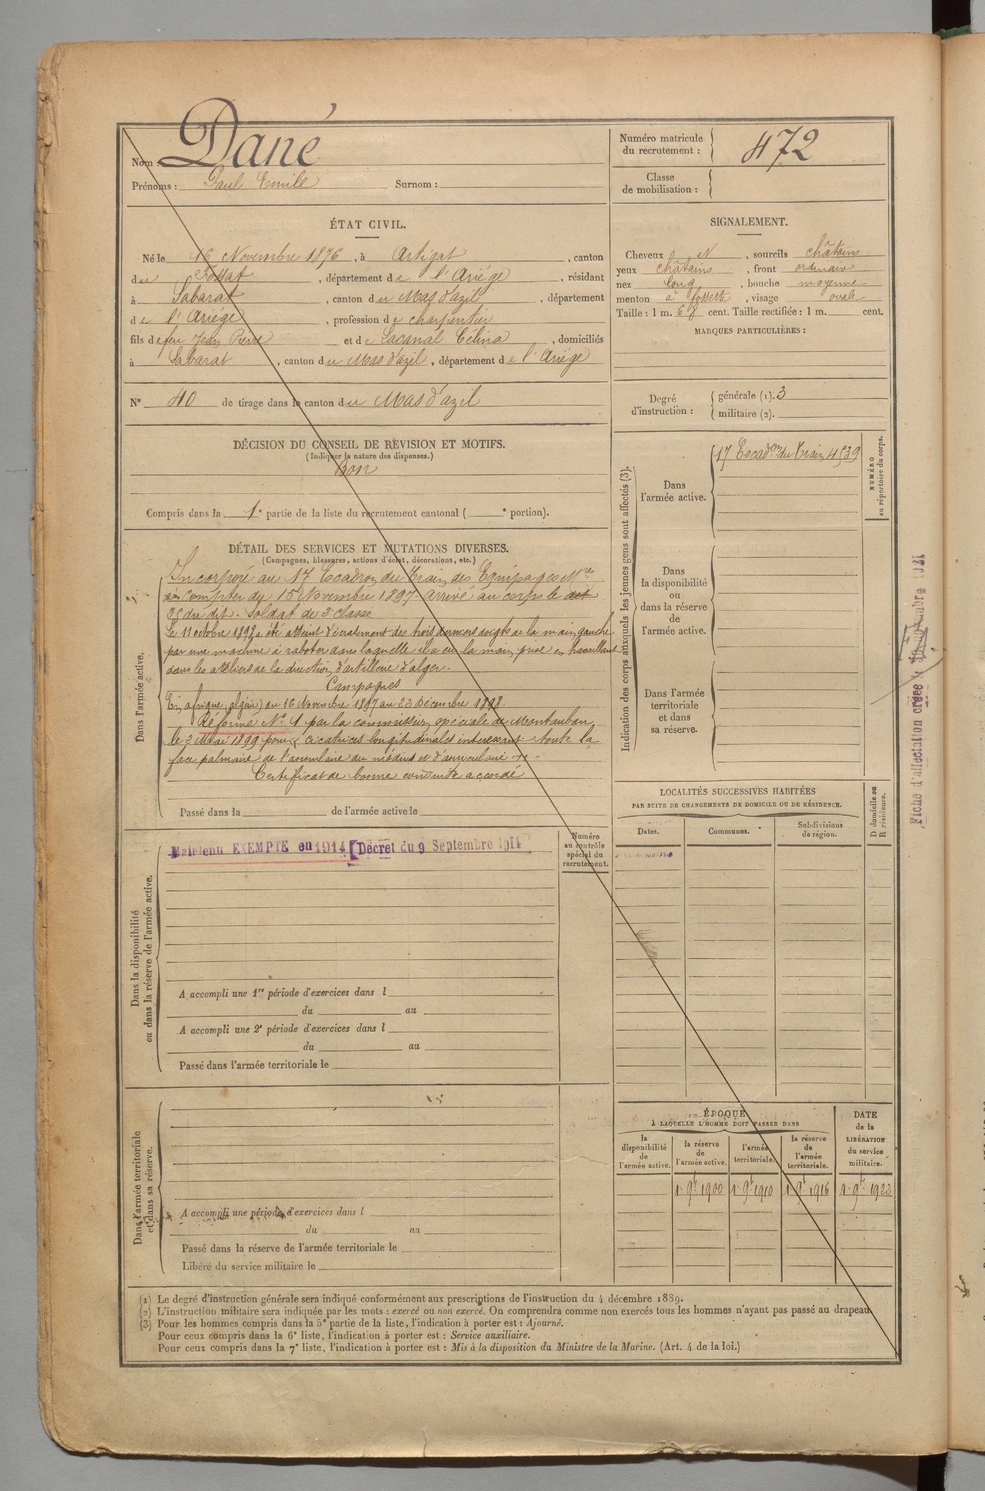 Nom : Dané
Prénoms : Paul Emile Surnom :
Numéro matricule du recrutement : 472
Classe de mobilisation :
ÉTAT CIVIL.
Né le 16 Novembre 1876, à Artigat, canton
du Fossat, département de l'Ariége, résidant
à Sabarat, canton du Mas d'azil, département
de l'Ariége, profession de charpentier
fils de feu Jean Pierre et de Lacanal Célina, domiciliés
à Sabarat, canton du Mas d'azil, département de l'Ariége
N° 40 de tirage dans le canton du Mas d'azil
SIGNALEMENT.
Cheveux et N, sourcils châtains
yeux châtains, front ordinaire
nez long, bouche moyenne
menton à fossette, visage ovale
Taille : 1 m. 68 cent. Taille rectifiée : 1 m. cent.
MARQUES PARTICULIÈRES :
Degré d'instruction : générale (1). 3
militaire (2).
DÉCISION DU CONSEIL DE RÉVISION ET MOTIFS.
(Indiquer la nature des dispenses.)
Bon
Compris dans la 1e partie de la liste du recrutement cantonal ( e portion).
Indication des corps auxquels les jeunes gens sont affectés (3).
Dans l'armée active.
17 Escadron du Train 4539
NUMÉRO au répertoire du corps.
Dans la disponibilité ou dans la réserve de l'armée active.
Dans l'armée territoriale et dans sa réserve.
DÉTAIL DES SERVICES ET MUTATIONS DIVERSES.
(Campagnes, blessures, actions d'éclat, décorations, etc.)
Dans l'armée active.
Incorporé au 17 Escadron du Train des Equipages Mres
à compter du 15 Novembre 1897. arrivé au corps le
dit. Soldat de 2e classe
Le 11 octobre 1898 a été atteint d'écrasement des trois derniers doigts de la main gauche
par une machine à raboter dans laquelle il a eu la main prise en travaillant
dans les ateliers de la direction d'artillerie d'alger.
Campagnes
En afrique (algérie) du 16 Novembre 1897 au 23 Décembre 1898.
Réformé N° 1 par la commission spéciale de Montauban
le 2 Mai 1899 pour « cicatrices longitudinales intéressant toute la
face palmaire de l'annulaire du médius et d'auriculaire »
Certificat de bonne conduite accordé
Passé dans la de l'armée active le
Dans la disponibilité ou dans la réserve de l'armée active.
Maintenu EXEMPTÉ en 1914 [Décret du 9 Septembre 1914
Numéro au contrôle spécial du recrutement.
A accompli une 1re période d'exercices dans l
du au
A accompli une 2e période d'exercices dans l
du au
Passé dans l'armée territoriale le
LOCALITÉS SUCCESSIVES HABITÉES
PAR SUITE DE CHANGEMENTS DE DOMICILE OU DE RÉSIDENCE.
Dates. Communes. Subdivisions de région.
D domicile ou R résidence.
Dans l'armée territoriale et dans sa réserve.
A accompli une période d'exercices dans l
du au
Passé dans la réserve de l'armée territoriale le
Libéré du service militaire le
ÉPOQUE
À LAQUELLE L'HOMME DOIT PASSER DANS
la disponibilité de l'armée active.
la réserve de l'armée active.
l'armée territoriale.
la réserve de l'armée territoriale.
DATE de la LIBÉRATION du service militaire.
1 9bre 1900 1 9bre 1910 1 9bre 1916 1 9bre 1922
(1) Le degré d'instruction générale sera indiqué conformément aux prescriptions de l'instruction du 4 décembre 1889.
(2) L'instruction militaire sera indiquée par les mots : exercé ou non exercé. On comprendra comme non exercés tous les hommes n'ayant pas passé au drapeau.
(3) Pour les hommes compris dans la 5e partie de la liste, l'indication à porter est : Ajourné.
Pour ceux compris dans la 6e liste, l'indication à porter est : Service auxiliaire.
Pour ceux compris dans la 7e liste, l'indication à porter est : Mis à la disposition du Ministre de la Marine. (Art. 4 de la loi.)
Fiche d'affectation créée le